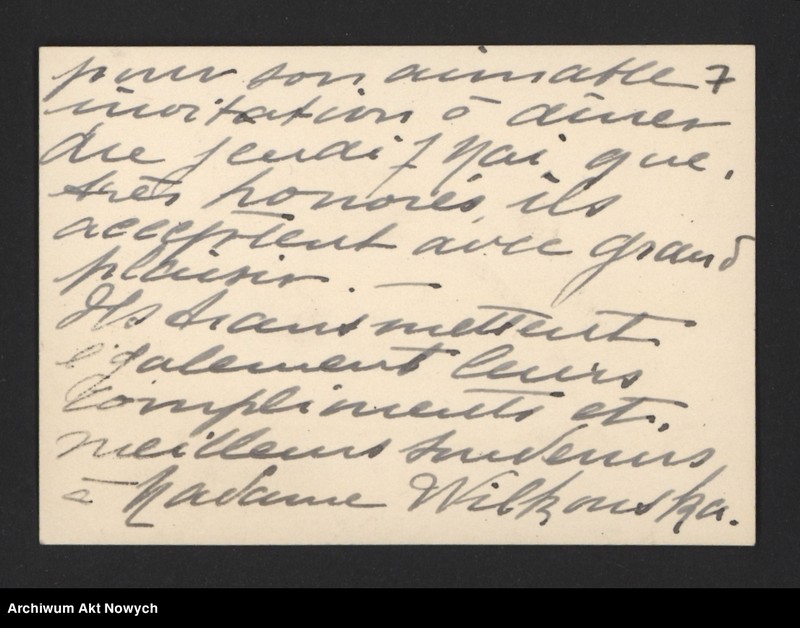 pour son aimable 7
invitation à dîner
du jeudi 7 Mai que,
très honorés, ils
acceptent avec grand
plaisir. —
Ils transmettent
également leurs
compliments et
meilleurs souvenirs
à Madame Wilkonska.
Archiwum Akt Nowych